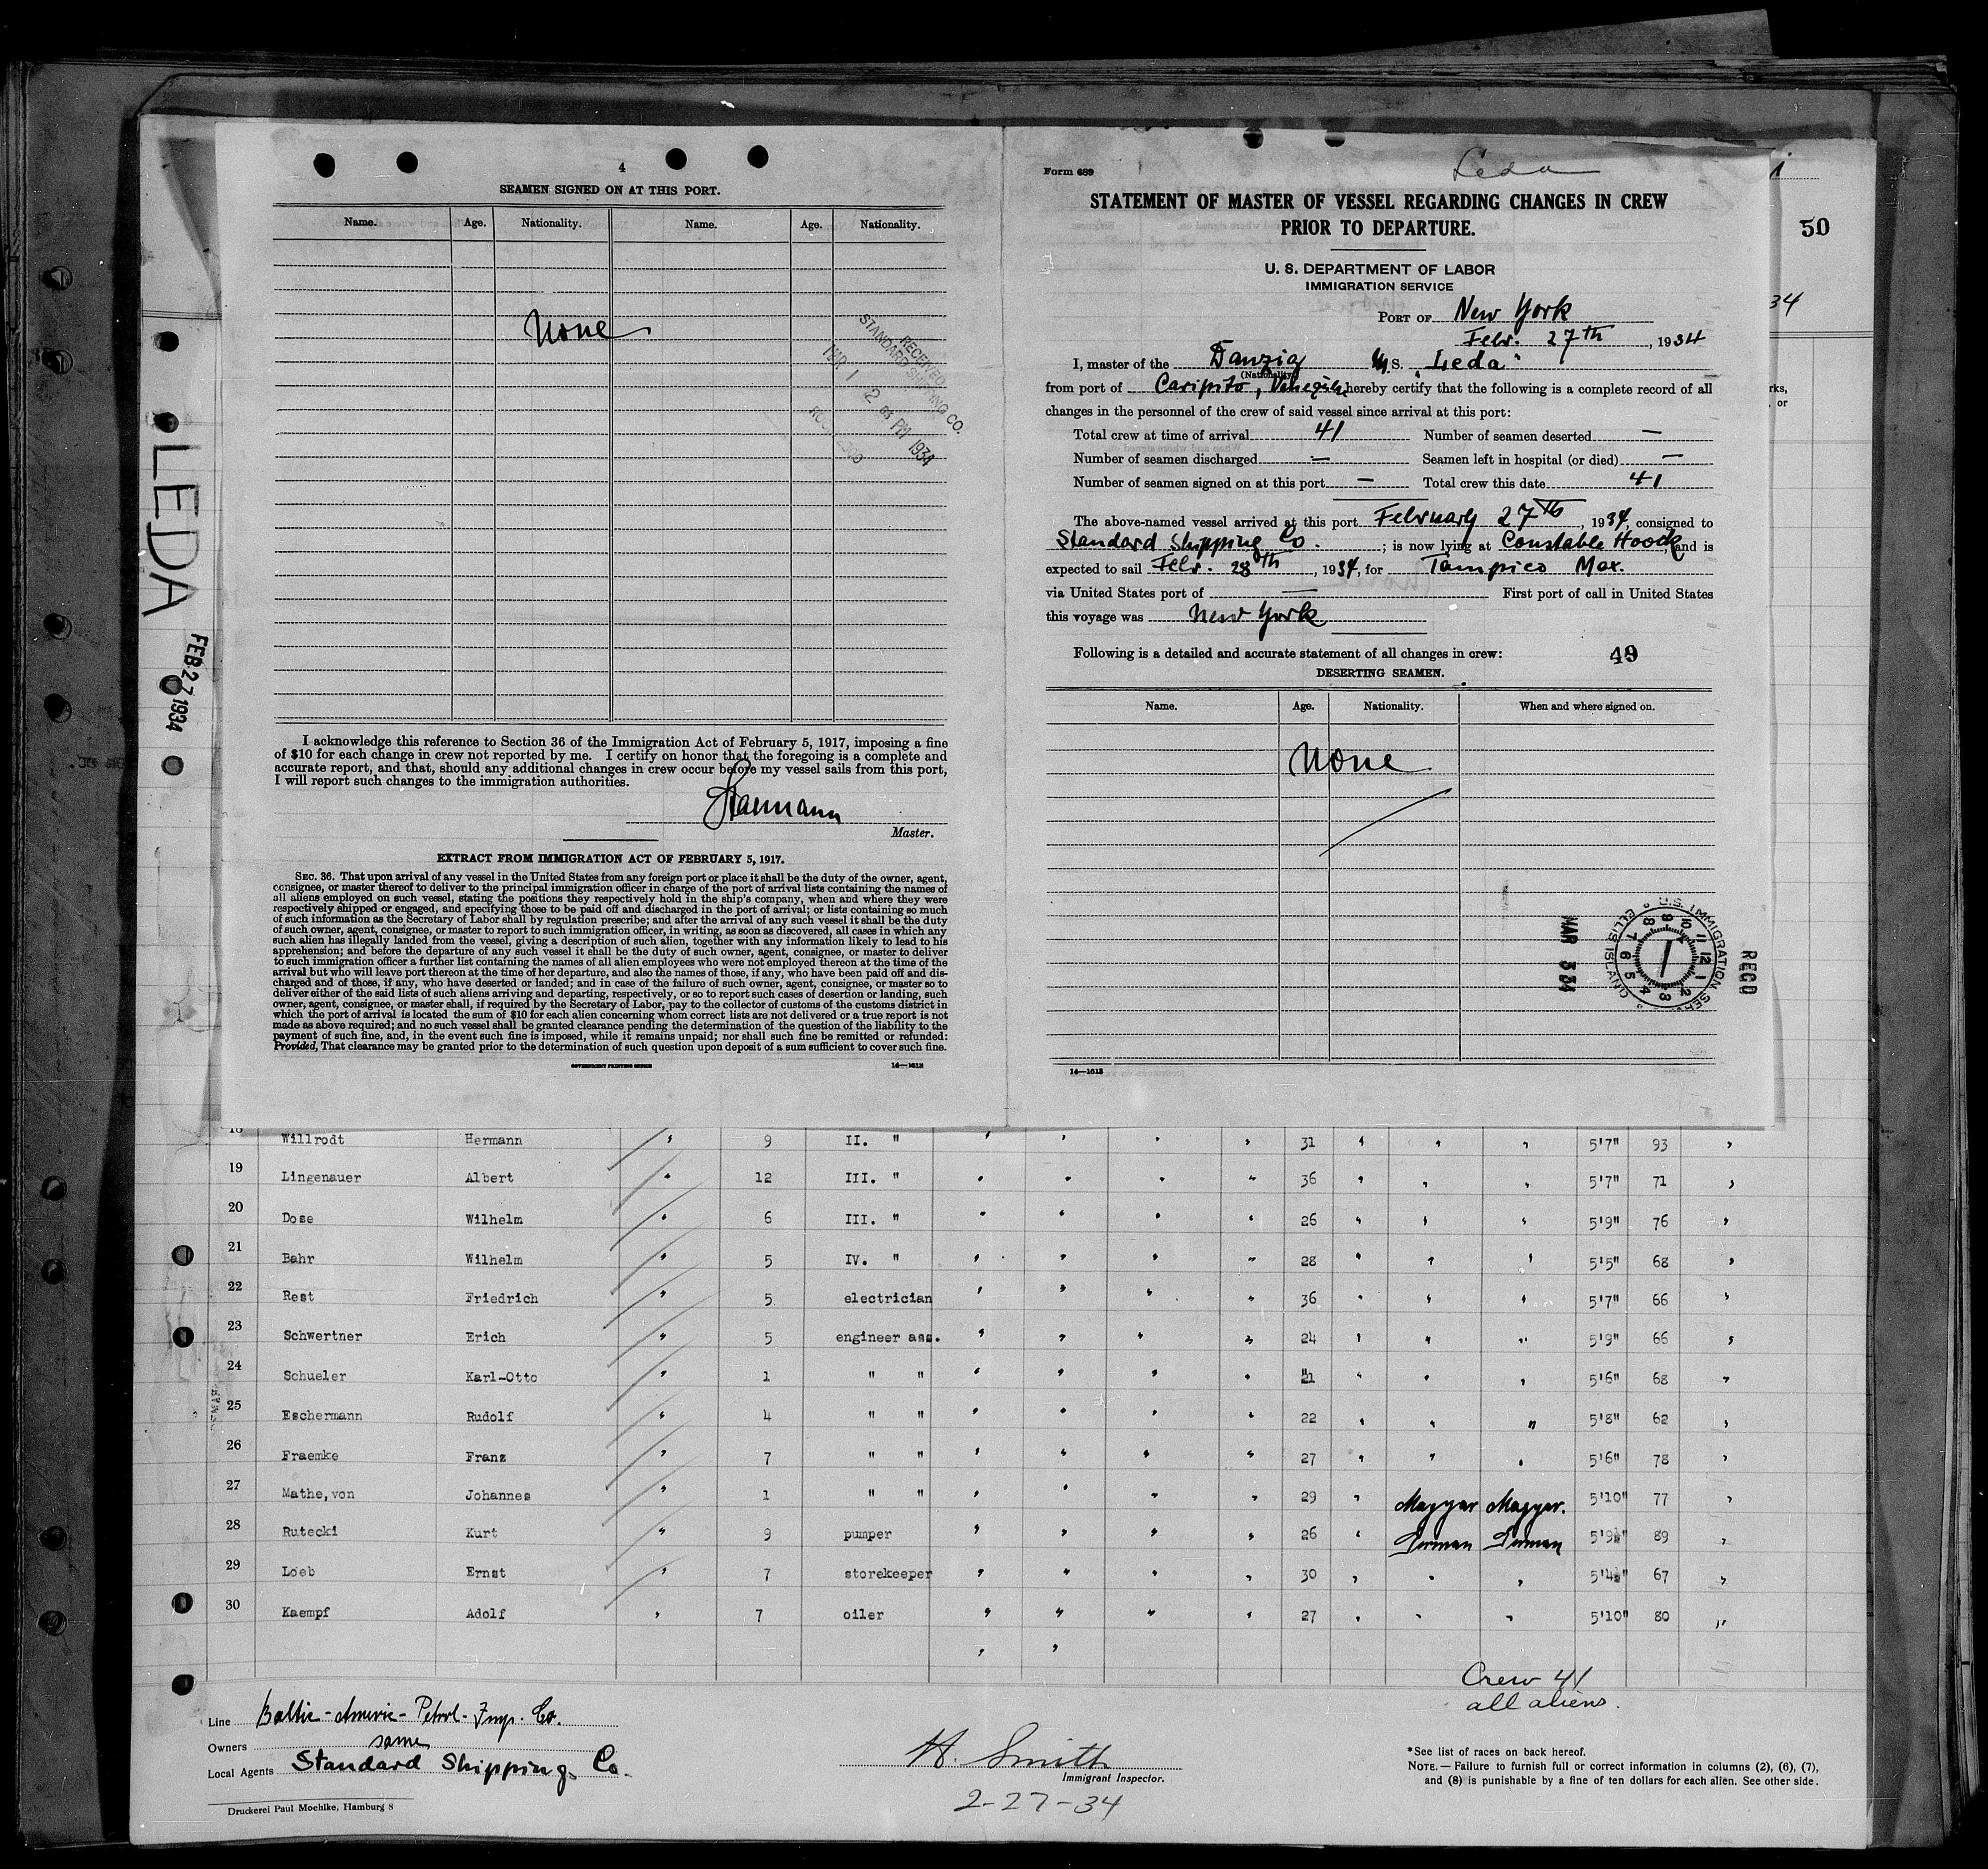 4
SEAMEN SIGNED ON AT THIS PORT.
Name. Age. Nationality. Name. Age. Nationality.
None
RECEIVED
STANDARD SHIPPING CO.
MAR 1 2 PM 1934
I acknowledge this reference to Section 36 of the Immigration Act of February 5, 1917, imposing a fine
of $10 for each change in crew not reported by me. I certify on honor that the foregoing is a complete and
accurate report, and that, should any additional changes in crew occur before my vessel sails from this port,
I will report such changes to the immigration authorities.
Master.
EXTRACT FROM IMMIGRATION ACT OF FEBRUARY 5, 1917.
SEC. 36. That upon arrival of any vessel in the United States from any foreign port or place it shall be the duty of the owner, agent,
consignee, or master thereof to deliver to the principal immigration officer in charge of the port of arrival lists containing the names of
all aliens employed on such vessel, stating the positions they respectively hold in the ship's company, when and where they were
respectively shipped or engaged, and specifying those to be paid off and discharged in the port of arrival; or lists containing so much
of such information as the Secretary of Labor shall by regulation prescribe; and after the arrival of any such vessel it shall be the duty
of such owner, agent, consignee, or master to report to such immigration officer, in writing, as soon as discovered, all cases in which any
such alien has illegally landed from the vessel, giving a description of such alien, together with any information likely to lead to his
apprehension; and before the departure of any such vessel it shall be the duty of such owner, agent, consignee, or master to deliver
to such immigration officer a further list containing the names of all alien employees who were not employed thereon at the time of the
arrival but who will leave port thereon at the time of her departure, and also the names of those, if any, who have been paid off and dis-
charged and of those, if any, who have deserted or landed; and in case of the failure of such owner, agent, consignee, or master so to
deliver either of the said lists of such aliens arriving and departing, respectively, or so to report such cases of desertion or landing, such
owner, agent, consignee, or master shall, if required by the Secretary of Labor, pay to the collector of customs of the customs district in
which the port of arrival is located the sum of $10 for each alien concerning whom correct lists are not delivered or a true report is not
made as above required; and no such vessel shall be granted clearance pending the determination of the question of the liability to the
payment of such fine, and, in the event such fine is imposed, while it remains unpaid; nor shall such fine be remitted or refunded:
Provided, That clearance may be granted prior to the determination of such question upon deposit of a sum sufficient to cover such fine.
GOVERNMENT PRINTING OFFICE 14—1613
LEDA
FEB 27 1934
Form 689
Leda
STATEMENT OF MASTER OF VESSEL REGARDING CHANGES IN CREW
PRIOR TO DEPARTURE.
U. S. DEPARTMENT OF LABOR
IMMIGRATION SERVICE
PORT OF New York
Febr. 27th, 1934
I, master of the Danzig M.S. "Leda"
(Nationality)
from port of Caripito, hereby certify that the following is a complete record of all
changes in the personnel of the crew of said vessel since arrival at this port:
Total crew at time of arrival 41 Number of seamen deserted —
Number of seamen discharged — Seamen left in hospital (or died) —
Number of seamen signed on at this port — Total crew this date 41
The above-named vessel arrived at this port February 27th, 1934, consigned to
Standard Shipping Co. ; is now lying at Constable Hoock, and is
expected to sail Febr. 28th, 1934, for Tampico Mex.
via United States port of — First port of call in United States
this voyage was New York
Following is a detailed and accurate statement of all changes in crew: 49
DESERTING SEAMEN.
Name. Age. Nationality. When and where signed on.
None
REC'D
U.S. IMMIGRATION SER. ELLIS ISLAND
12 1 2 3 4 5 6 7 8 9 10 11
MAR 3 34
14—1613
50
34
18 Willrodt Hermann " 9 II. " " " " " 31 " " " 5'7" 93 "
19 Lingenauer Albert " 12 III. " " " " " 36 " " " 5'7" 71 "
20 Dose Wilhelm " 6 III. " " " " " 26 " " " 5'9" 76 "
21 Bahr Wilhelm " 5 IV. " " " " " 28 " " " 5'5" 68 "
22 Rest Friedrich " 5 electrician " " " " 36 " " " 5'7" 66 "
23 Schwertner Erich " 5 engineer ass. " " " " 24 " " " 5'9" 66 "
24 Schueler Karl-Otto " 1 " " " " " " 21 " " " 5'6" 68 "
25 Eschermann Rudolf " 4 " " " " " " 22 " " " 5'8" 62 "
26 Fraemke Franz " 7 " " " " " " 27 " " " 5'6" 78 "
27 Mathe,von Johannes " 1 " " " " " " 29 " Magyar Magyar. 5'10" 77 "
28 Rutecki Kurt " 9 pumper " " " " 26 " German German 5'9½" 89 "
29 Loeb Ernst " 7 storekeeper " " " " 30 " " " 5'4½" 67 "
30 Kaempf Adolf " 7 oiler " " " " 27 " " " 5'10" 80 "
Crew 41
all aliens.
Line Baltic-Americ-Petrol-Imp. Co.
Owners same
Local Agents Standard Shipping Co.
Druckerei Paul Moehlke, Hamburg 8
H. Smith
Immigrant Inspector.
2-27-34
*See list of races on back hereof.
NOTE.—Failure to furnish full or correct information in columns (2), (6), (7),
and (8) is punishable by a fine of ten dollars for each alien. See other side.